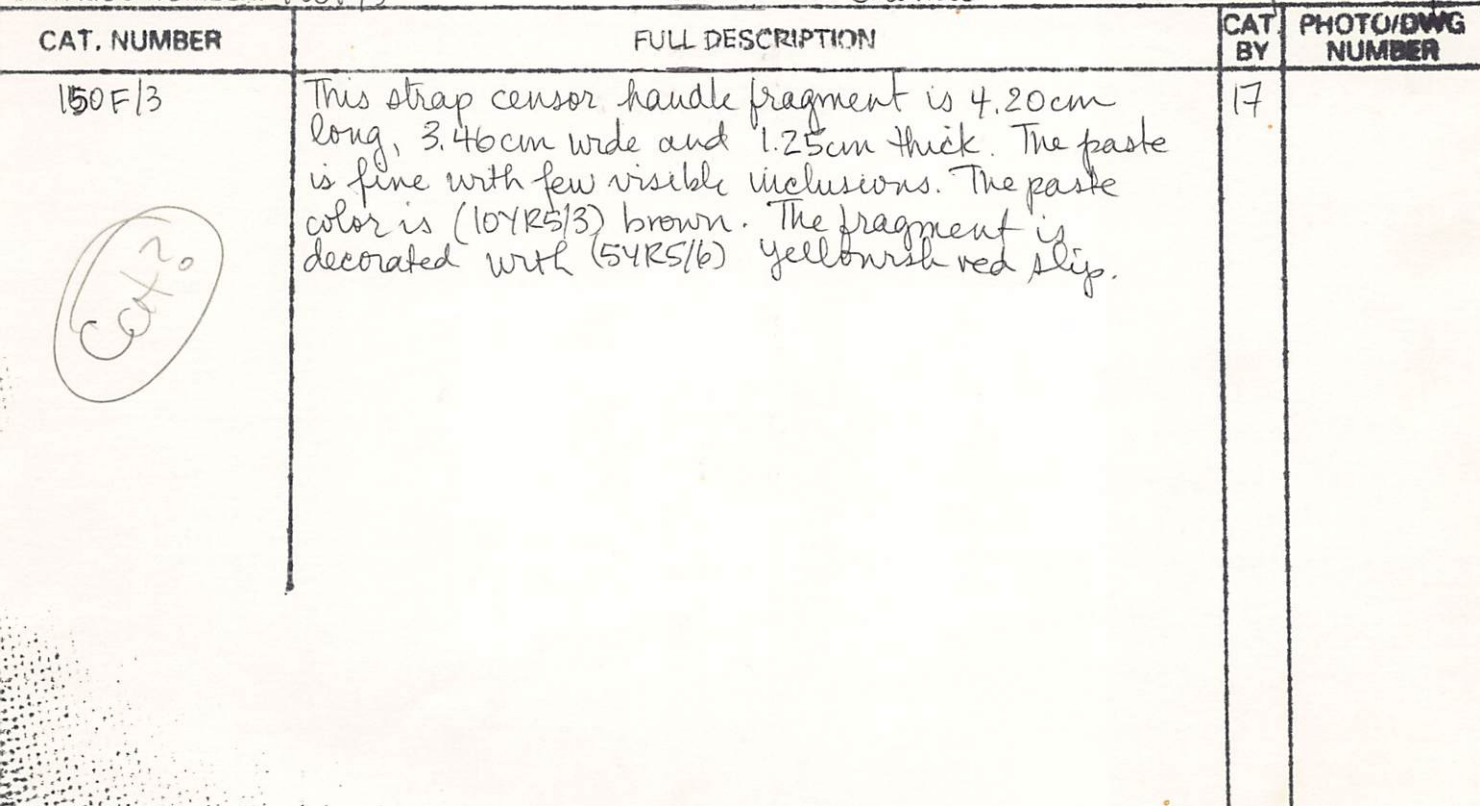 CAT. NUMBER
FULL DESCRIPTION
CAT. BY
PHOTO/DWG NUMBER
150F/3
This strap censor handle fragment is 4.20cm
long, 3.46cm wide and 1.25cm thick. The paste
is fine with few visible inclusions. The paste
color is (10YR5/3) brown. The fragment is
decorated with (5YR5/6) yellowish red slip.
17
Cat?